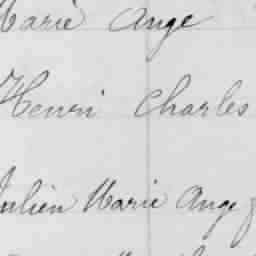 Marie Ange
Henri Charles
Julien Marie Ange